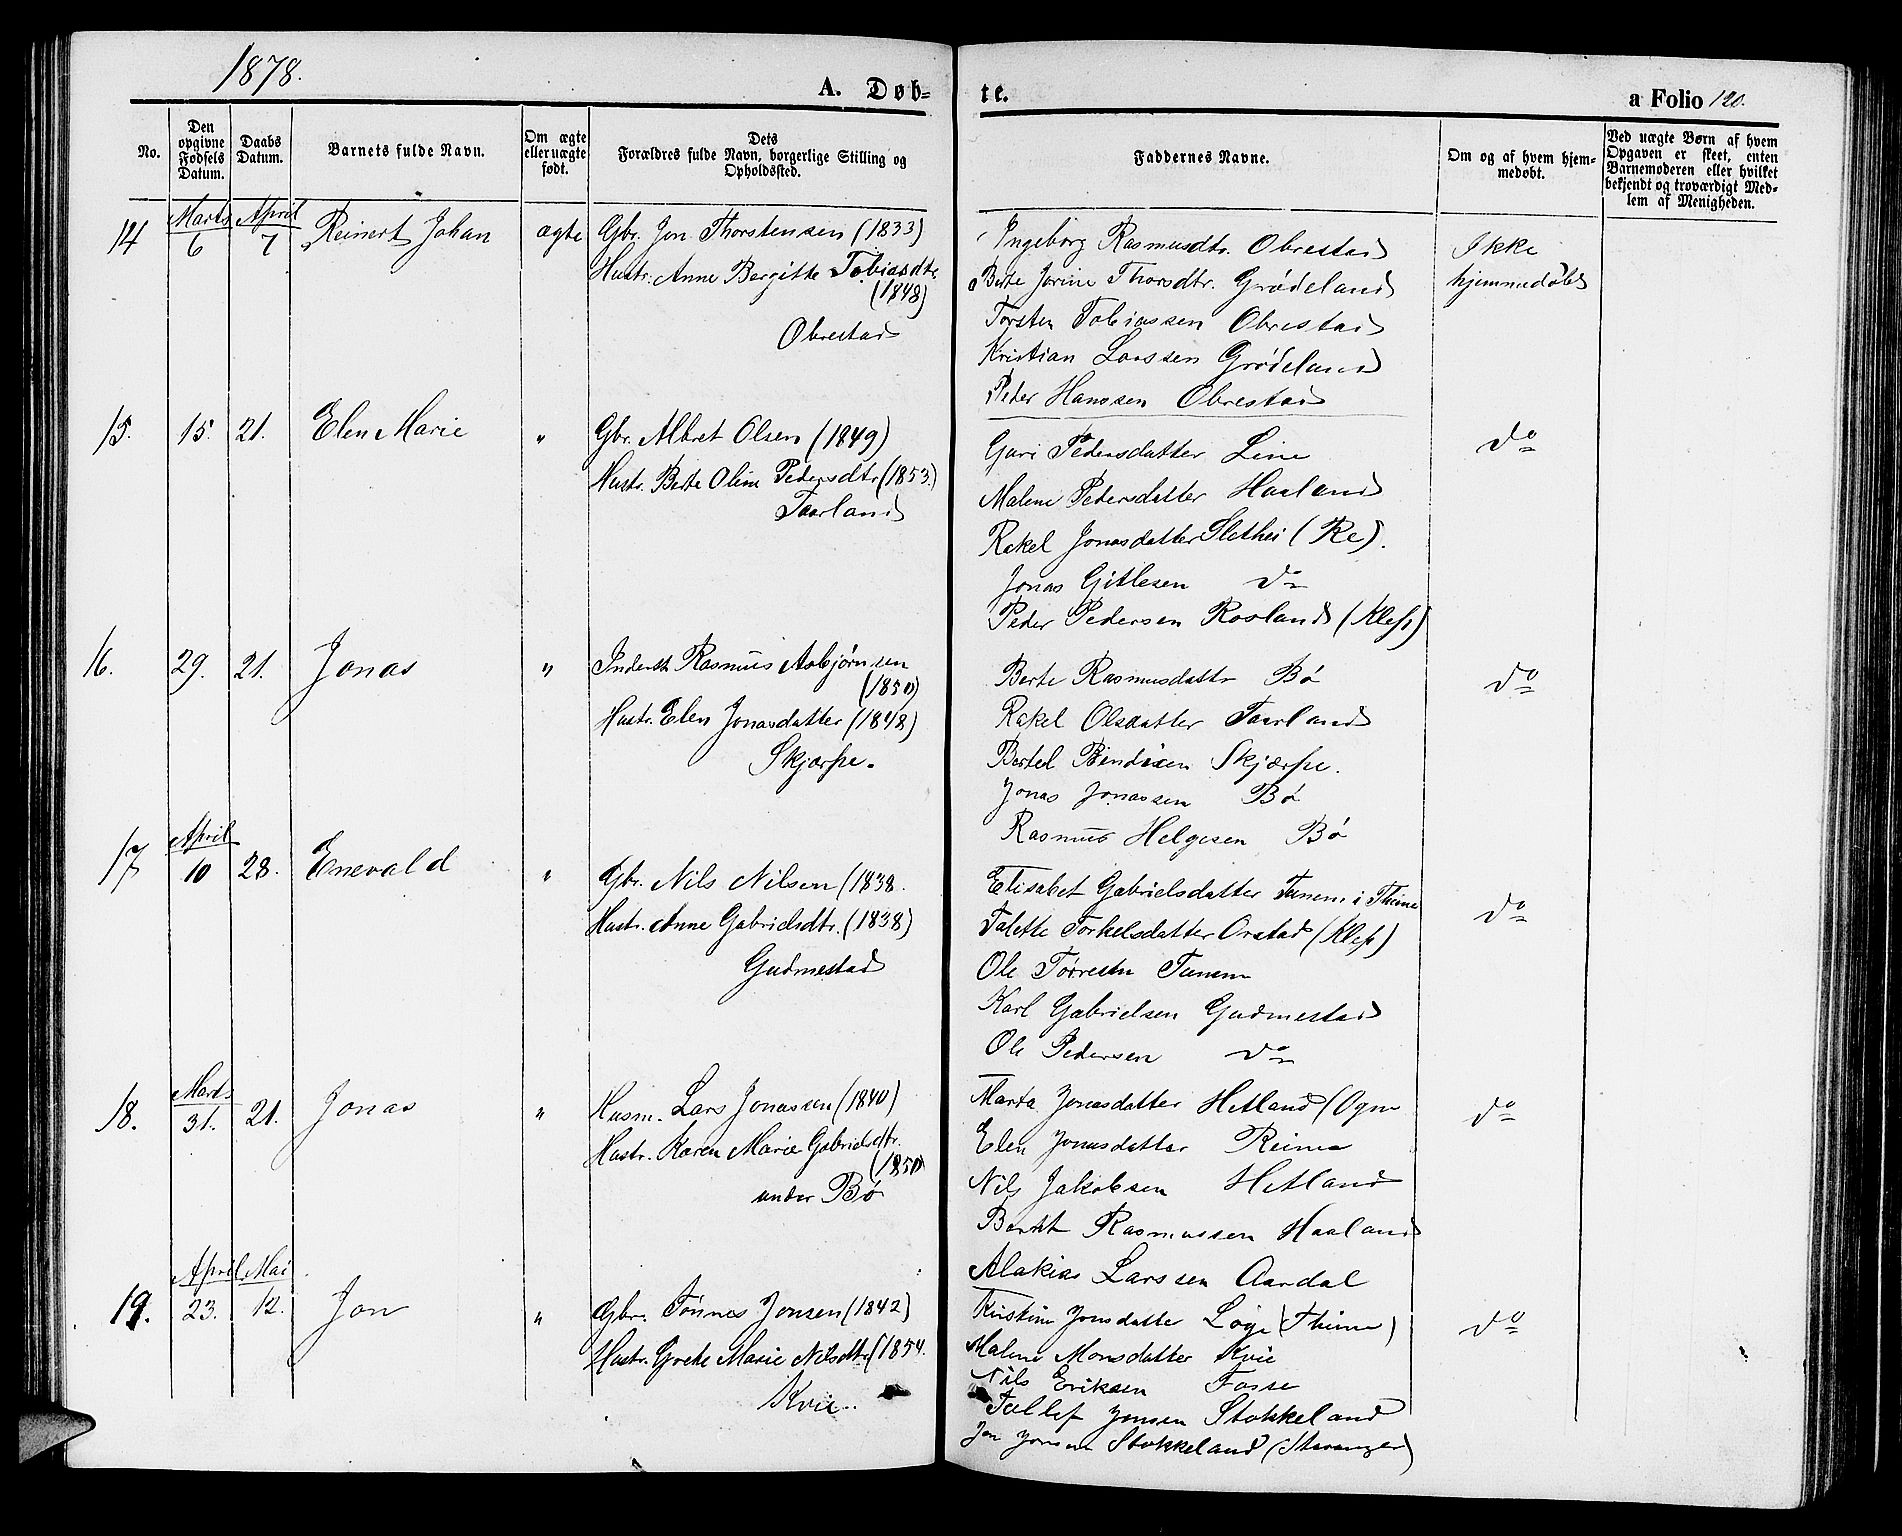 1878.
A. Døb-
te.
a Folio 120.
No.
Den opgivne Fødsels Datum.
Daabs Datum.
Barnets fulde Navn.
Om ægte eller uægte født.
Dets Forældres fulde Navn, borgerlige Stilling og Opholdssted.
Faddernes Navne.
Om og af hvem hjemmedøbt.
Ved uægte Børn af hvem Opgaven er skeet, enten Barnemoderen eller hvilket bekjendt og troværdigt Medlem af Menigheden.
14 Marts 6 April 7 Reinert Johan ægte
Gbr. Jon Thorstensen (1833)
Hustr. Anne Bergitte Tobiasdtr.
(1848)
Obrestad
Ingeborg Rasmusdtr. Obrestad
Berte Jorine Thorsdtr. Grødeland
Torsten Tobiassen Obrestad
Kristian Larssen Grødeland
Peder Hanssen Obrestad
Ikke
hjemmedøbt
15. 15. 21. Elen Marie "
Gbr. Albret Olsen (1849)
Hustr. Berte Oline Pedersdtr (1853.)
Taarland
Guri Pedersdatter Line
Malene Pedersdatter Haaland
Rakel Jonasdatter Slethei (Re).
Jonas Gitlesen do
Peder Pedersen Rosland (Klep)
do
16. 29. 21. Jonas "
Inderst Rasmus Asbjørnsen
(1850)
Hustr. Elen Jonasdatter (1848)
Skjærpe.
Berte Rasmusdattr Bø
Rakel Olsdatter Taarland
Bertel Bendixen Skjærpe.
Jonas Jonassen Bø
Rasmus Helgesen Bø
do
17 April 10 28. Enevald "
Gbr. Nils Nilsen (1838.
Hustr. Anne Gabrielsdtr. (1838)
Gudmestad
Elisabet Gabrielsdatter Tunem i Thime
Talette Torkelsdatter Orstad (Klep)
Ole Tørresen Tunem
Karl Gabrielsen Gudmestad
Ole Pedersen do
do
18. Marts 31. 21. Jonas "
Husm. Lars Jonassen (1840)
Hustr. Karen Marie Gabrielsdtr.
(1850)
under Bø
Marta Jonasdatter Hetland (Ogne
Elen Jonasdatter Reime
Nils Jakobsen Hetland
Berent Rasmussen Haaland
Alakias Larssen Aardal
do
19. April 23. Mai 12. Jon "
Gbr. Tønnes Jonsen (1842)
Hustr. Grete Marie Nilsdtr. (1854.
Kvie.
Kristine Jonsdatter Løge (Thime)
Malene Monsdatter Kvie
Nils Eriksen Fosse
Tallef Jonsen Stokkeland
Jon Jonsen Stokkeland (Stavanger)
do